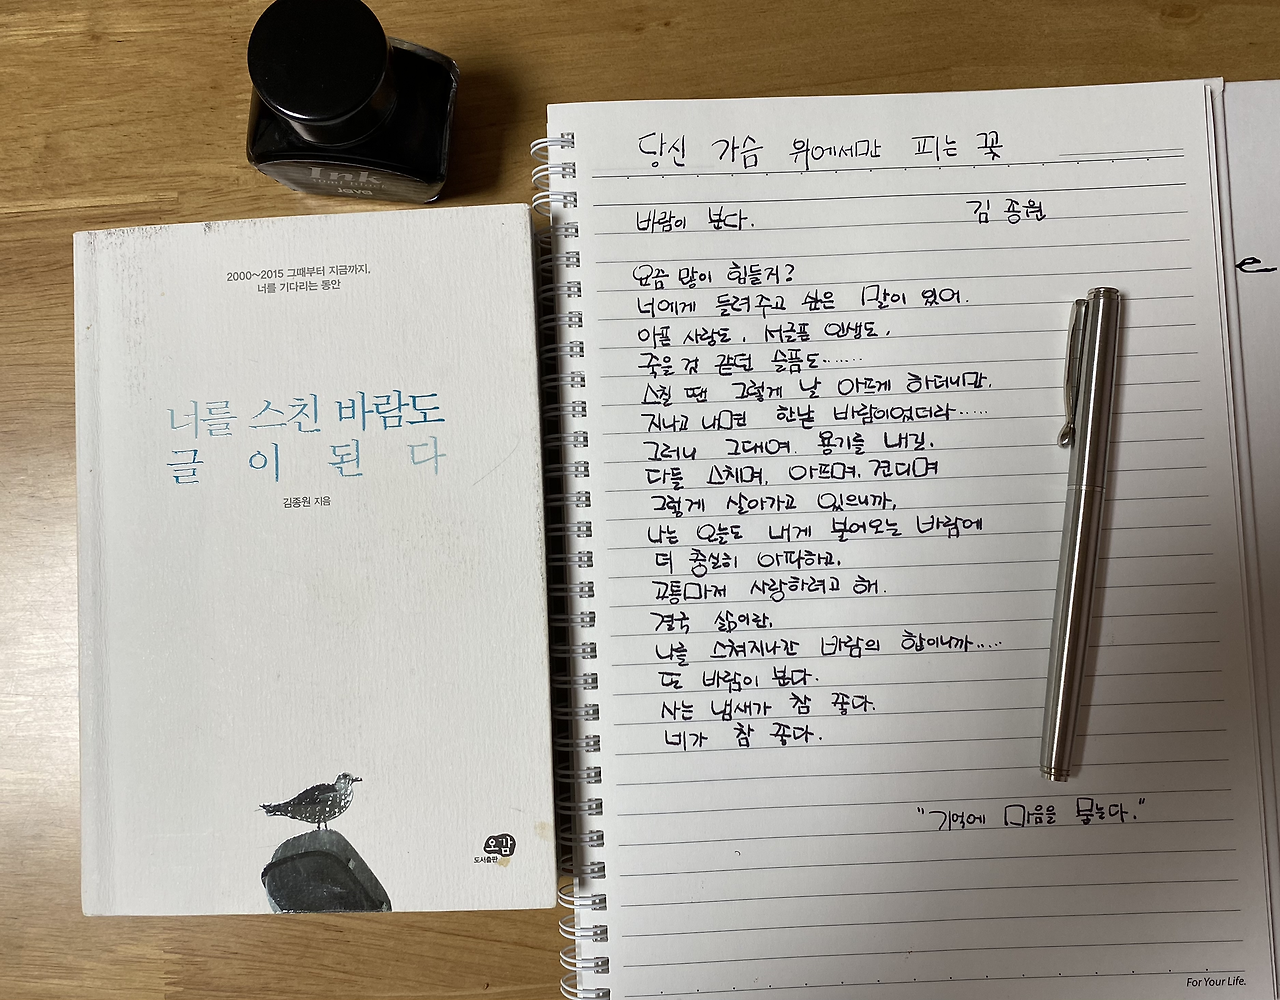 Ink
Java
2000~2015 그때부터 지금까지,
너를 기다리는 동안
너를 스친 바람도
글이 된다
김종원 지음
오감
도서출판
당신 가슴 위에서만 피는 꽃
김종원
바람이 분다.
요즘 많이 힘들지?
너에게 들려주고 싶은 말이 있어.
아픈 사랑도, 서글픈 인생도,
죽을 것 같던 슬픔도......
스칠 땐 그렇게 날 아프게 하더니만,
지나고 내면 한낱 바람이었더라.....
그러니 그대여, 용기를 내길.
다들 스치며, 아프며, 견디며
그렇게 살아가고 있으니까,
나는 오늘도 내게 불어오는 바람에
더 충실히 아파하고,
고통마저 사랑하려고 해.
결국 삶이란,
나를 스쳐지나간 바람의 합이니까.....
또 바람이 분다.
사는 냄새가 참 좋다.
네가 참 좋다.
"기억에 마음을 묻는다."
e
For Your Life.